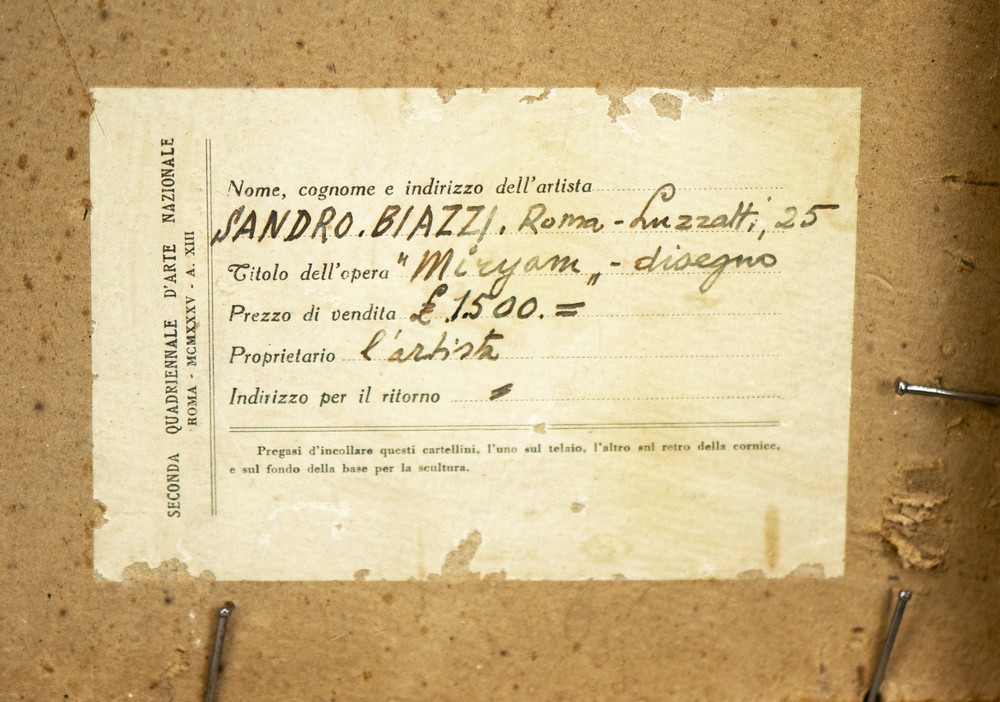 SECONDA QUADRIENNALE D'ARTE NAZIONALE
ROMA - MCMXXXV - A. XIII
Nome, cognome e indirizzo dell'artista
SANDRO. BIAZZI. Roma - Luzzatti, 25
Titolo dell'opera "Miryam„ - disegno
Prezzo di vendita £ 1500. =
Proprietario l'artista
Indirizzo per il ritorno =
Pregasi d'incollare questi cartellini, l'uno sul telaio, l'altro snl retro della cornice,
e sul fondo della base per la scultura.